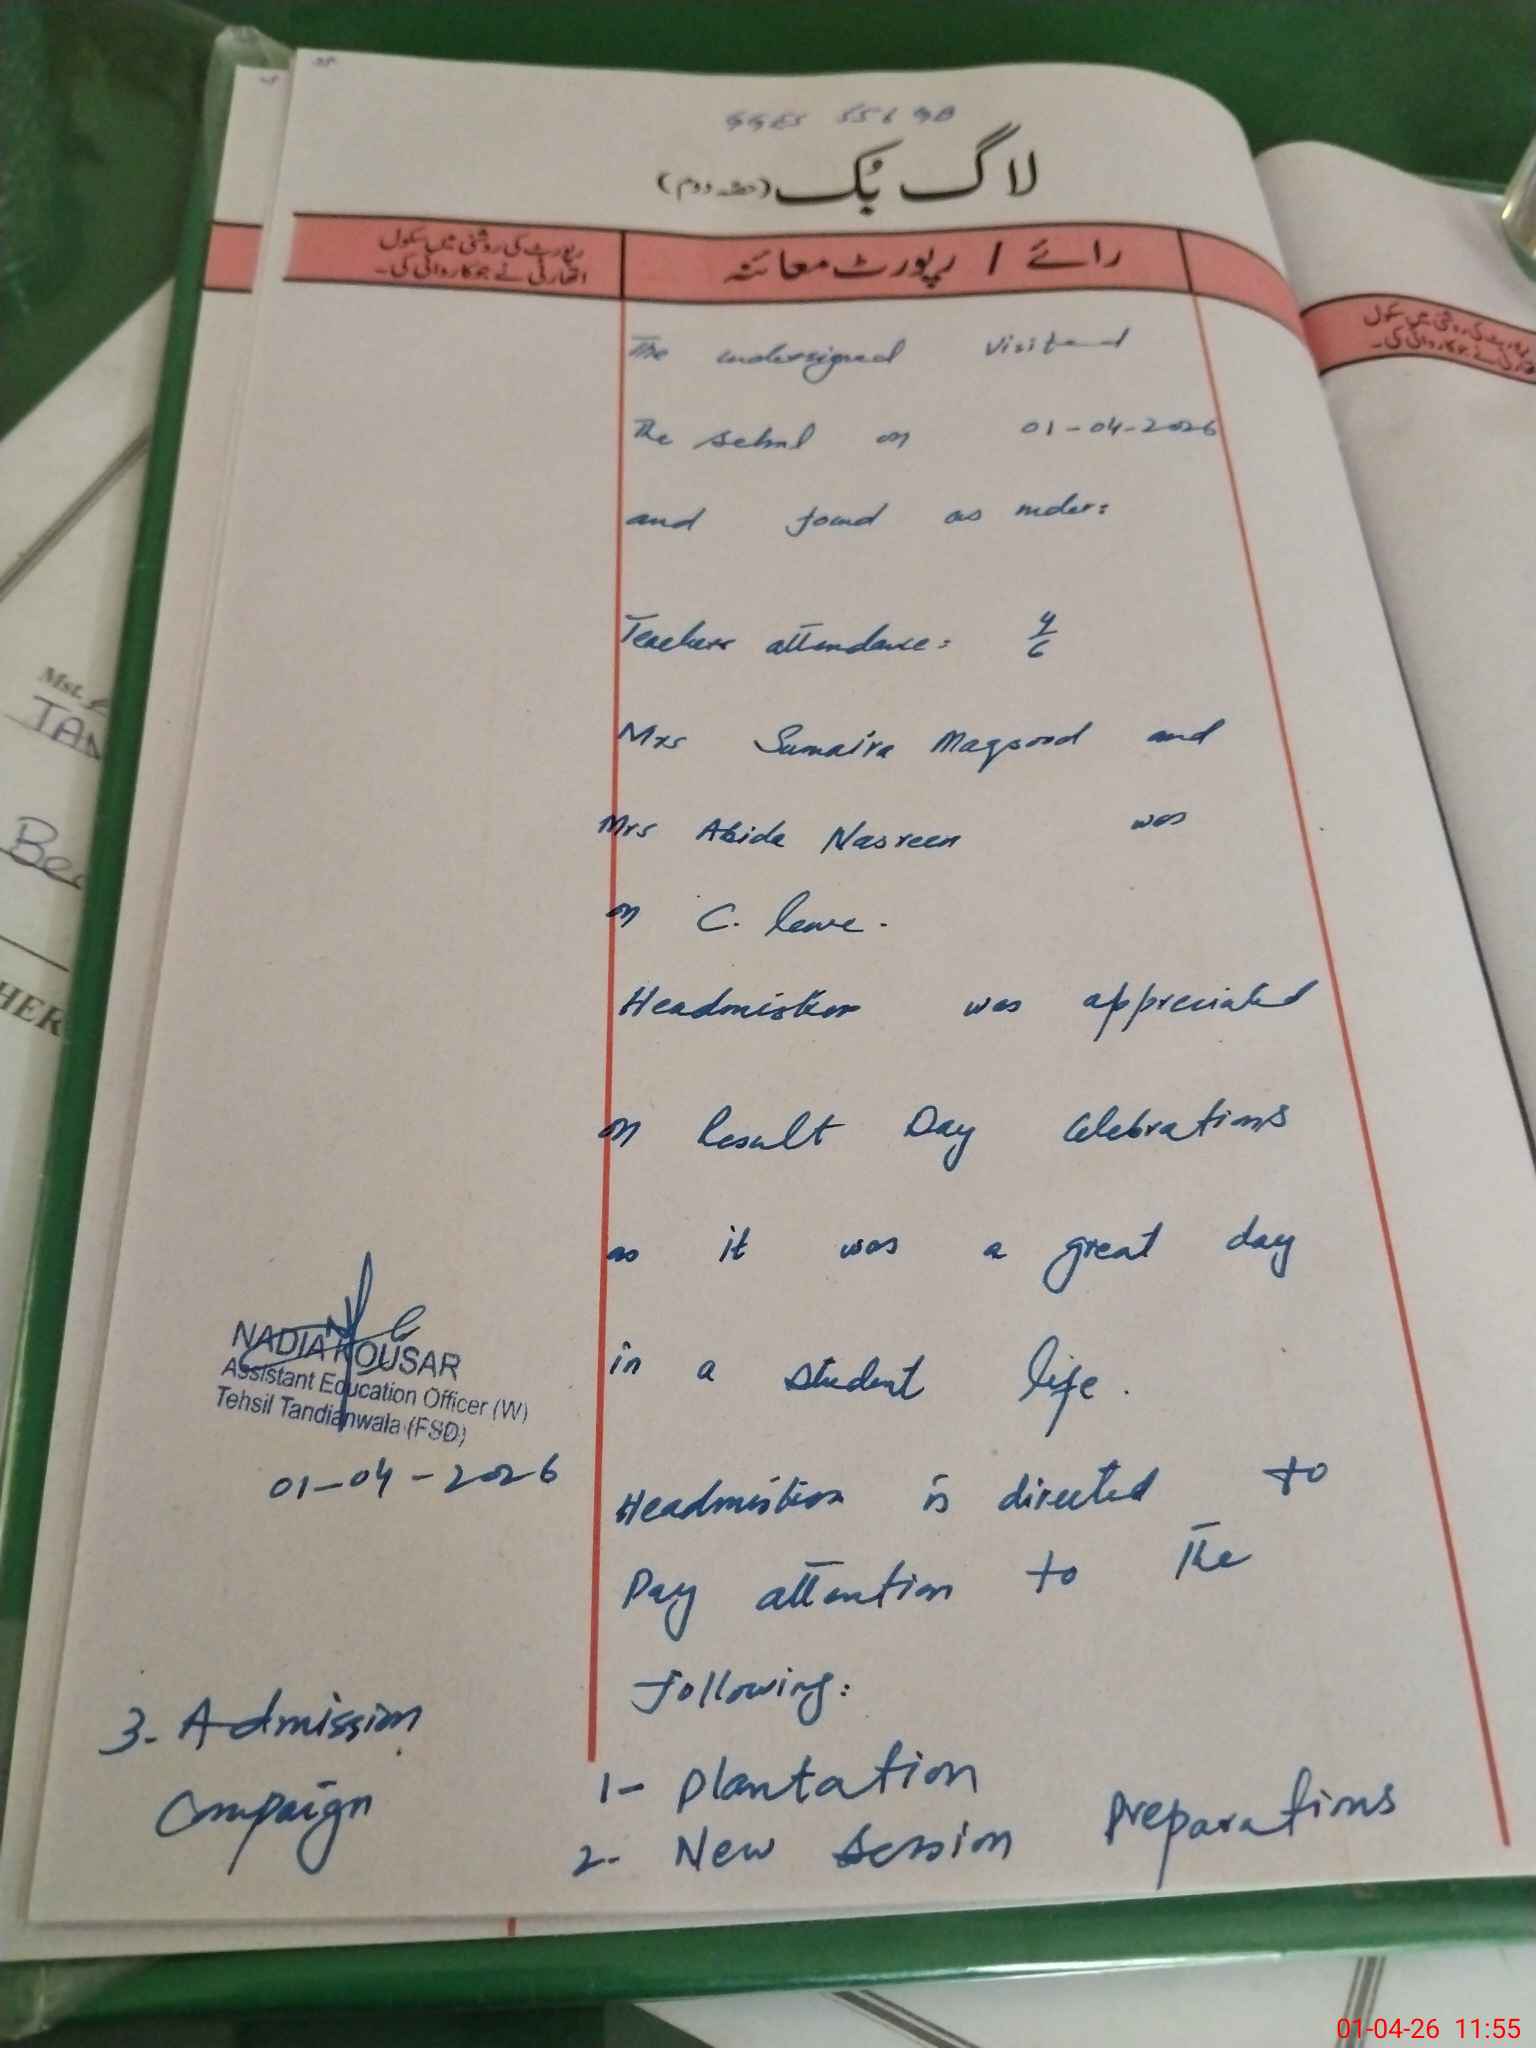 GGES 556 GB
لاگ بُک (حصہ دوم)
رائے / رپورٹ معائنہ
رپورٹ کی روشنی میں سکول
اتھارٹی نے جو کاروائی کی۔
The undersigned visited
The school on 01-04-2026
and found as under:
Teachers attendance: 4/6
Mrs Sumaira Maqsood and
Mrs Abida Nasreen was
on C. leave.
Headmistress was appreciated
on Result Day Celebrations
as it was a great day
in a student life.
Headmistress is directed to
Pay attention to The
following:
1- Plantation
2- New Session Preparations
3- Admission
Campaign
NADIA KOUSAR
Assistant Education Officer (W)
Tehsil Tandianwala (FSD)
01-04-2026
Mst.
TAN
HER
01-04-26 11:55